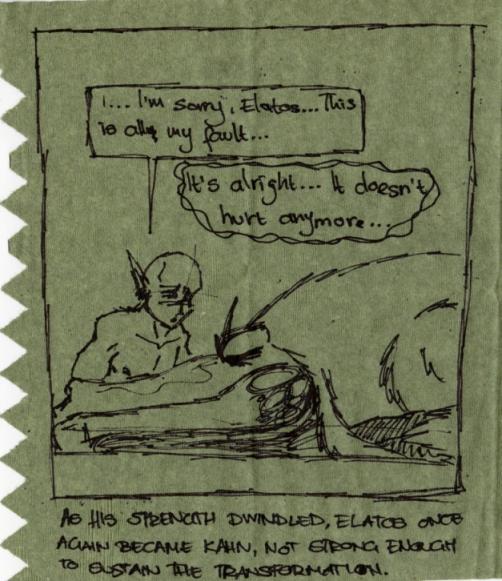 I... I'm sorry, Elatos... This
is all my fault...
It's alright... It doesn't
hurt anymore...
AS HIS STRENGTH DWINDLED, ELATOS ONCE
AGAIN BECAME KAHN, NOT STRONG ENOUGH
TO SUSTAIN THE TRANSFORMATION.